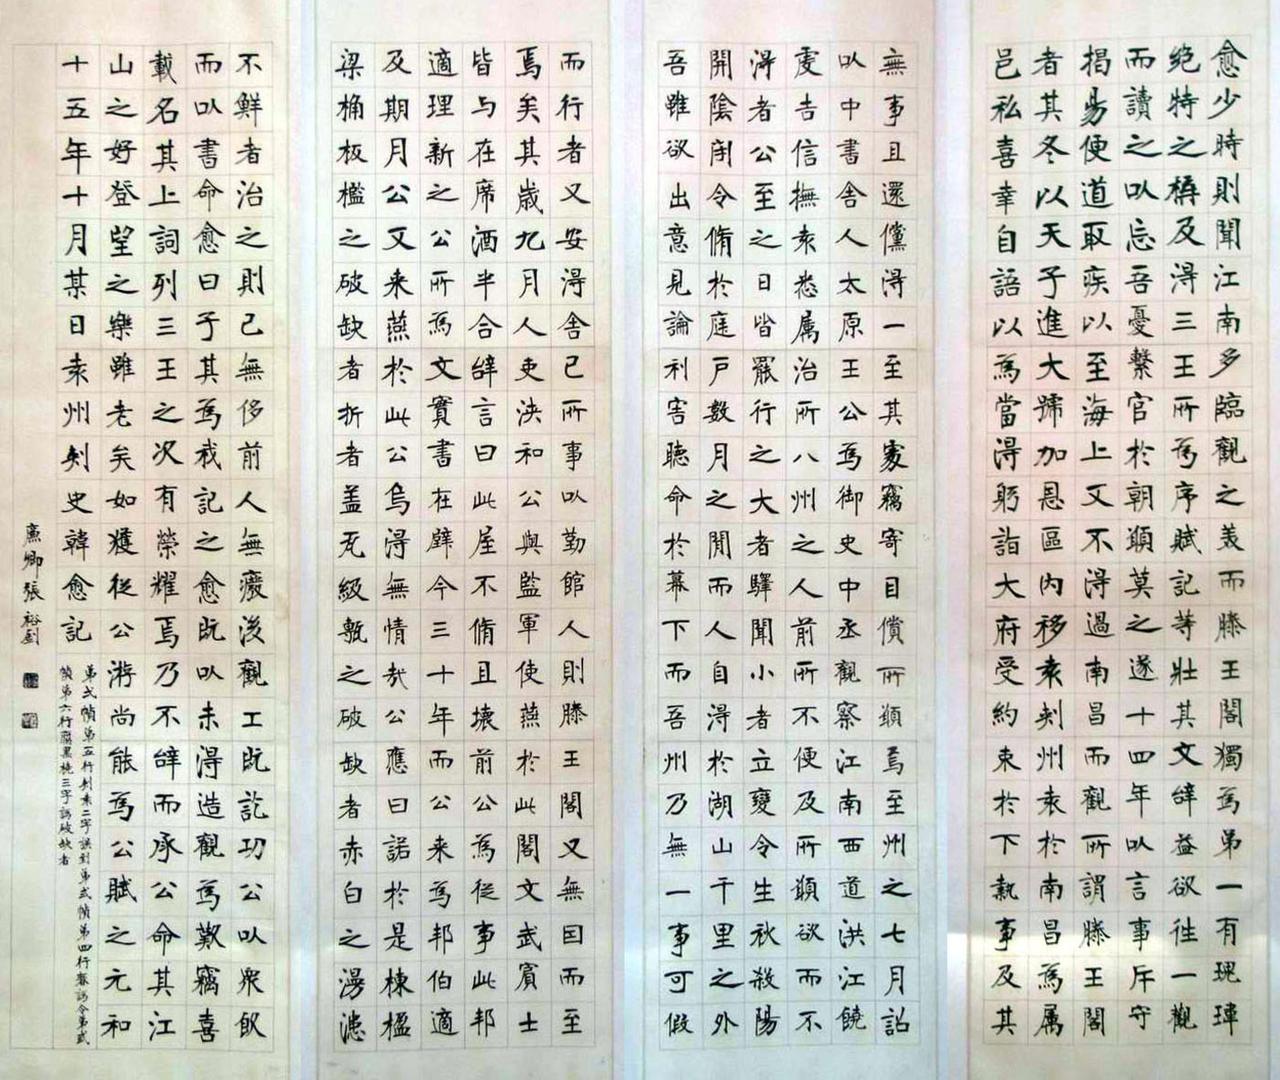 愈少時則聞江南多臨觀之美而滕王閣獨為弟一有瑰瑋
絕特之稱及得三王所為序賦記等壯其文辭益欲往一觀
而讀之以忘吾憂繫官於朝願莫之遂十四年以言事斥守
揭昜便道取疾以至海上又不得過南昌而觀所謂滕王閣
者其冬以天子進大號加恩區內移袁刺州袁於南昌為屬
邑私喜幸自語以為當得躬詣大府受約束於下執事及其
無事且還儻得一至其處竊寄目償所願焉至州之七月詔
以中書舍人太原王公為御史中丞觀察江南西道洪江饒
虔吉信撫袁悉屬治所八州之人前所不便及所願欲而不
得者公至之日皆罷行之大者驛聞小者立變令生秋殺陽
開陰閉令脩於庭戶數月之間而人自得於湖山千里之外
吾雖欲出意見論利害聽命於幕下而吾州乃無一事可假
而行者又安得舍己所事以勤館人則滕王閣又無因而至
焉矣其歲九月人吏浹和公與監軍使燕於此閣文武賓士
皆与在席酒半合辭言曰此屋不脩且壞前公為從事此邦
適理新之公所為文實書在壁今三十年而公來為邦伯適
及期月公又來燕於此公烏得無情哉公應曰諾於是棟楹
梁桷板檻之破缺者折者蓋瓦級甎之破缺者赤白之漫漶
不鮮者治之則已無侈前人無癈後觀工既訖功公以眾飲
而以書命愈曰子其為我記之愈既以未得造觀為歎竊喜
載名其上詞列三王之次有榮耀焉乃不辭而承公命其江
山之好登望之樂雖老矣如獲從公游尚能為公賦之元和
十五年十月某日袁州刺史韓愈記
弟弍幀第五行刺袁二字誤到弟弍幀第四行春誤令弟弍
幀第六行腐黑橈三字誤破缺者
廉卿張裕釗